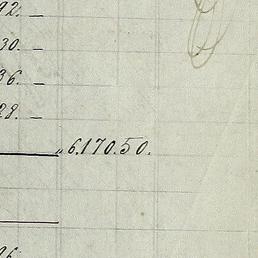 92. —
30. —
36. —
28. —
„ 6.170.50.
96.